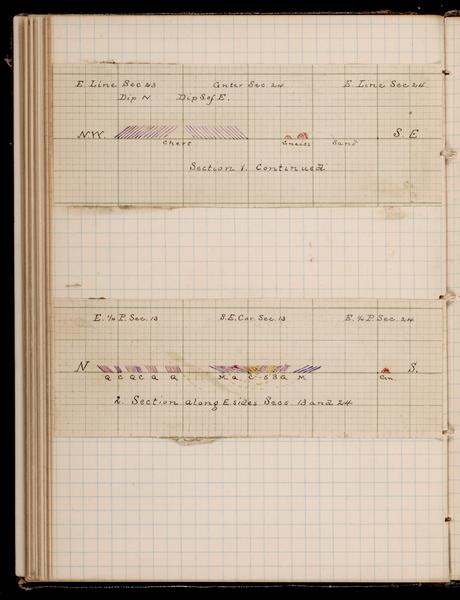 E. Line Sec 23 Center Sec. 24 E. Line Sec 24.
Dip N Dip S of E.
N.W. S. E
Chert Gneiss Sand
Section 1. Continued
E. ¼ P. Sec. 13 S. E. Cor. Sec. 13 E. ¼ P. Sec. 24.
N S.
Q C Q C Q Q M Q C S B Q M Gn.
2. Section along E. sides Secs. 13 and 24